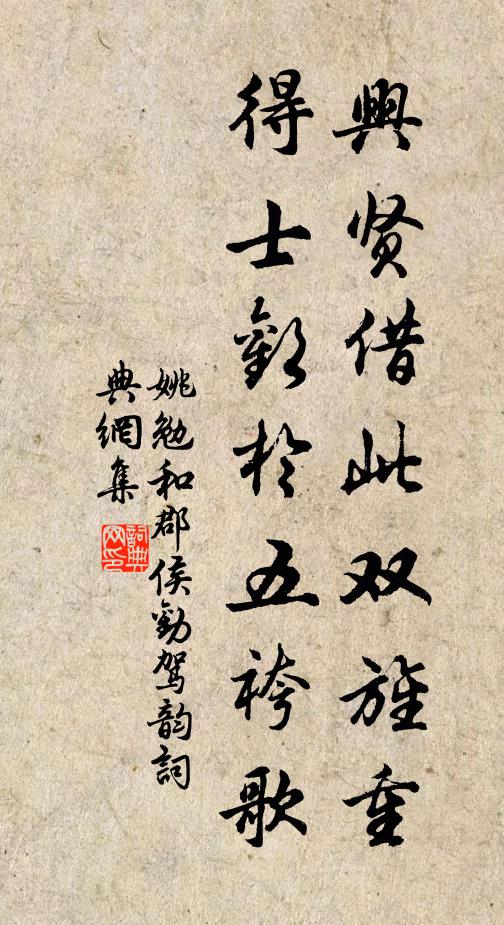 興贤借此双旌重
得士歡於五袴歌
姚勉和郡侯勸驾韵詞
典網集
詞典网印